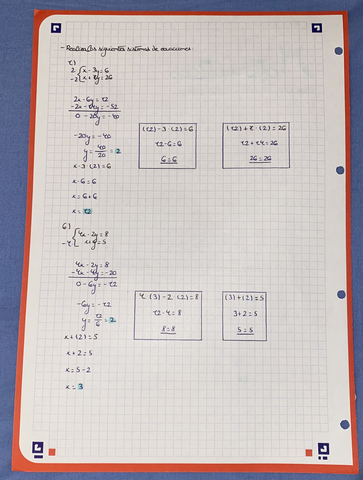 - Realiza los siguientes sistemas de ecuaciones:
1)
2 { x - 3y = 6
-2 { x + 7y = 26
2x - 6y = 12
-2x - 14y = -52
0 - 20y = -40
-20y = -40
y = 40/20 = 2
x - 3 · (2) = 6
x - 6 = 6
x = 6 + 6
x = 12
(12) - 3 · (2) = 6
12 - 6 = 6
6 = 6
(12) + 7 · (2) = 26
12 + 14 = 26
26 = 26
6)
{ 4x - 2y = 8
-4 { x + y = 5
4x - 2y = 8
-4x - 4y = -20
0 - 6y = -12
-6y = -12
y = 12/6 = 2
x + (2) = 5
x + 2 = 5
x = 5 - 2
x = 3
4 · (3) - 2 · (2) = 8
12 - 4 = 8
8 = 8
(3) + (2) = 5
3 + 2 = 5
5 = 5